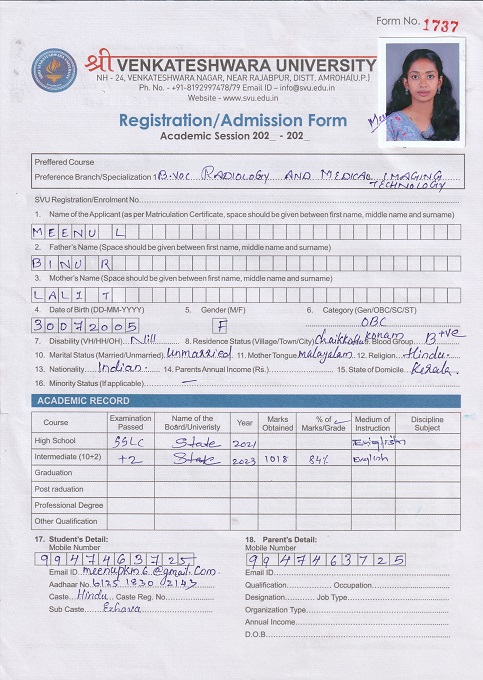 Form No. 1737
श्री VENKATESHWARA UNIVERSITY
NH - 24, VENKATESHWARA NAGAR, NEAR RAJABPUR, DISTT. AMROHA(U.P.)
Ph. No. - +91-8192997478/79 Email ID – info@svu.edu.in
Website - www.svu.edu.in
Registration/Admission Form
Academic Session 202_ - 202_
Preffered Course
Preference Branch/Specialization : B.VOC RADIOLOGY AND MEDICAL IMAGING
TECHNOLOGY
SVU Registration/Enrolment No.
1. Name of the Applicant (as per Matriculation Certificate, space should be given between first name, middle name and surname)
MEENU L
2. Father's Name (Space should be given between first name, middle name and surname)
BINU R
3. Mother's Name (Space should be given between first name, middle name and surname)
LALIT
4. Date of Birth (DD-MM-YYYY) 5. Gender (M/F) 6. Category (Gen/OBC/SC/ST)
30072005 F OBC
7. Disability (VH/HH/OH). Nill 8. Residence Status (Village/Town/City) 9. Blood Group. B+ve
10. Marital Status (Married/Unmarried). Unmarried 11. Mother Tongue malayalam 12. Religion. Hindu.
13. Nationality. Indian. 14. Parents Annual Income (Rs.) 15. State of Domicile. Kerala.
16. Minority Status (If applicable). —
ACADEMIC RECORD
Course Examination Passed Name of the Board/Univeristy Year Marks Obtained % of Marks/Grade Medium of Instruction Discipline Subject
High School SSLC State 2021 English
Intermediate (10+2) +2 State 2023 1018 84% English
Graduation
Post raduation
Professional Degree
Other Qualification
17. Student's Detail: 18. Parent's Detail:
Mobile Number Mobile Number
9947463725 9947463725
Email ID. meenupkm6@gmail.com Email ID
Aadhaar No. 6125 1830 2143 Qualification Occupation
Caste Hindu Caste Reg. No. Designation Job Type
Sub Caste Ezhava Organization Type
Annual Income
D.O.B.